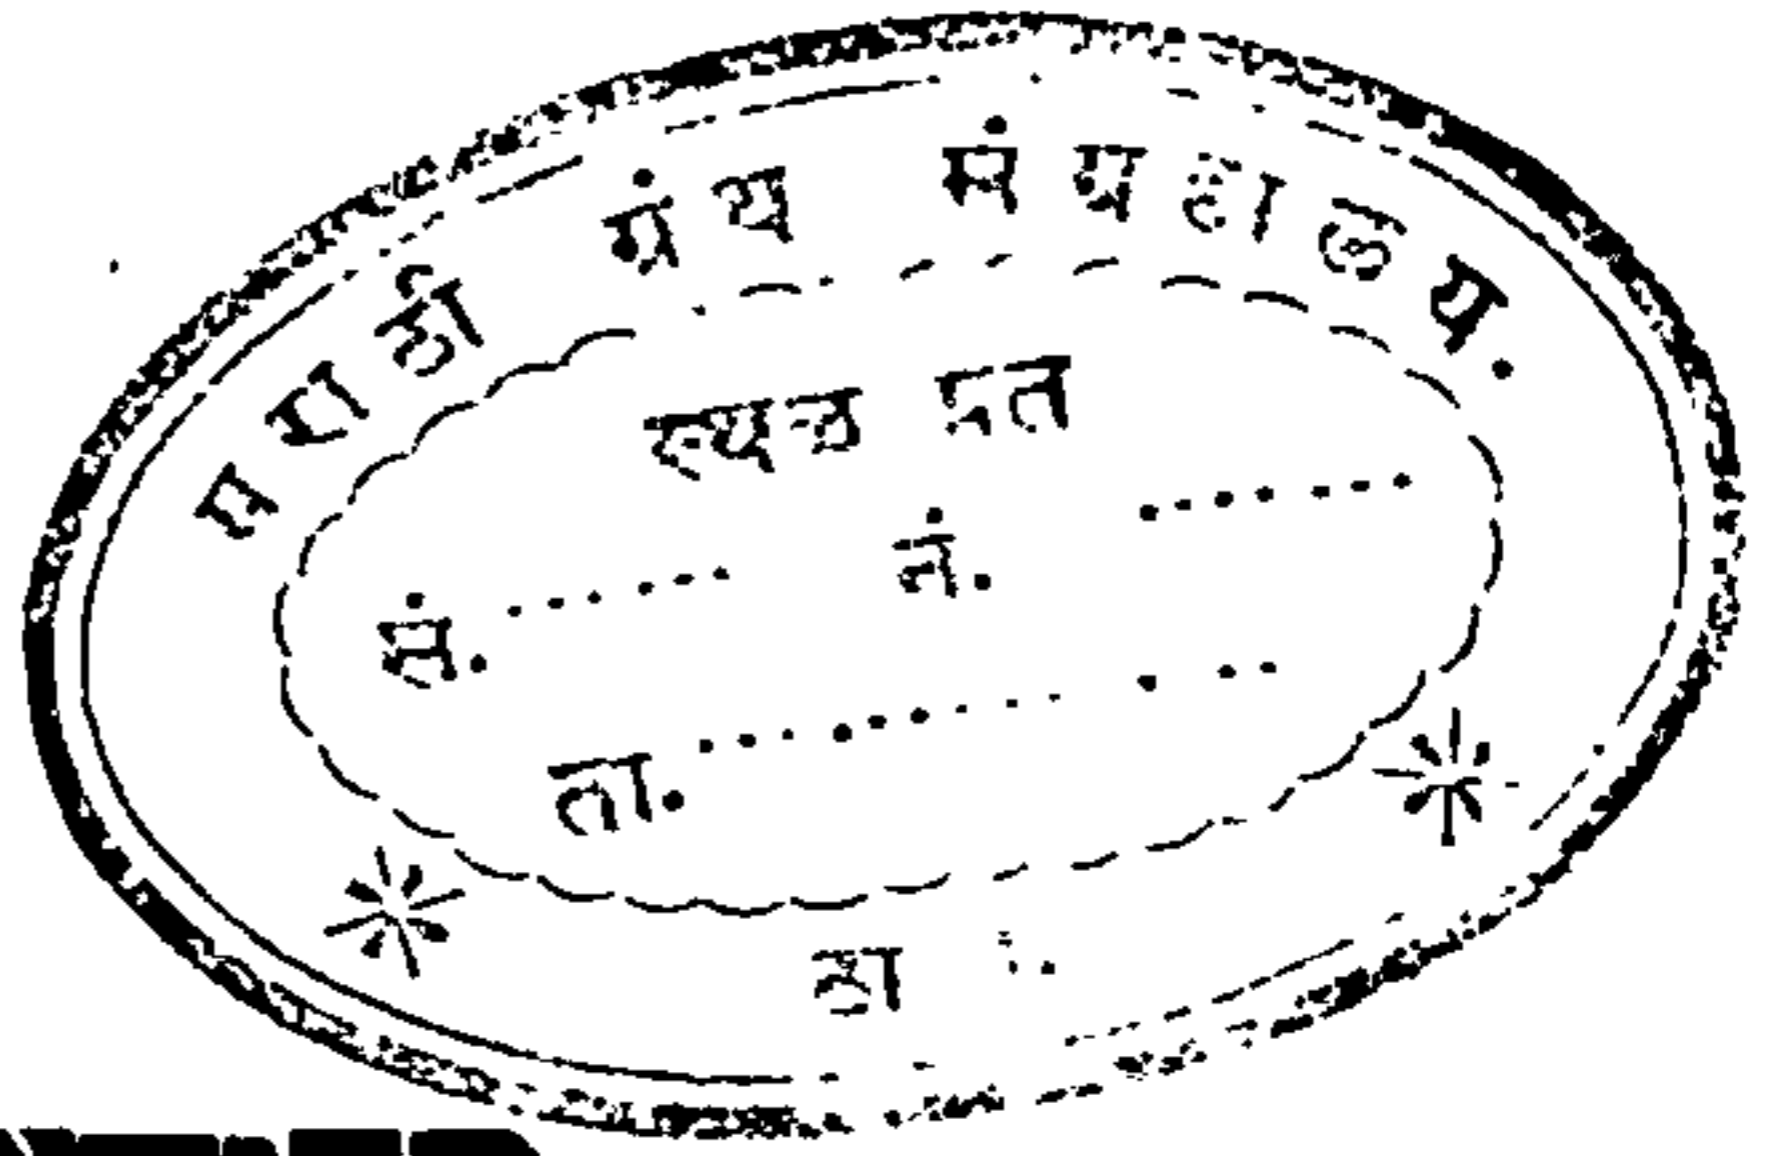 मराठी ग्रंथ संग्रहालय.
स्थळ प्रत
सं....... नं. .......
ता...............
ठा